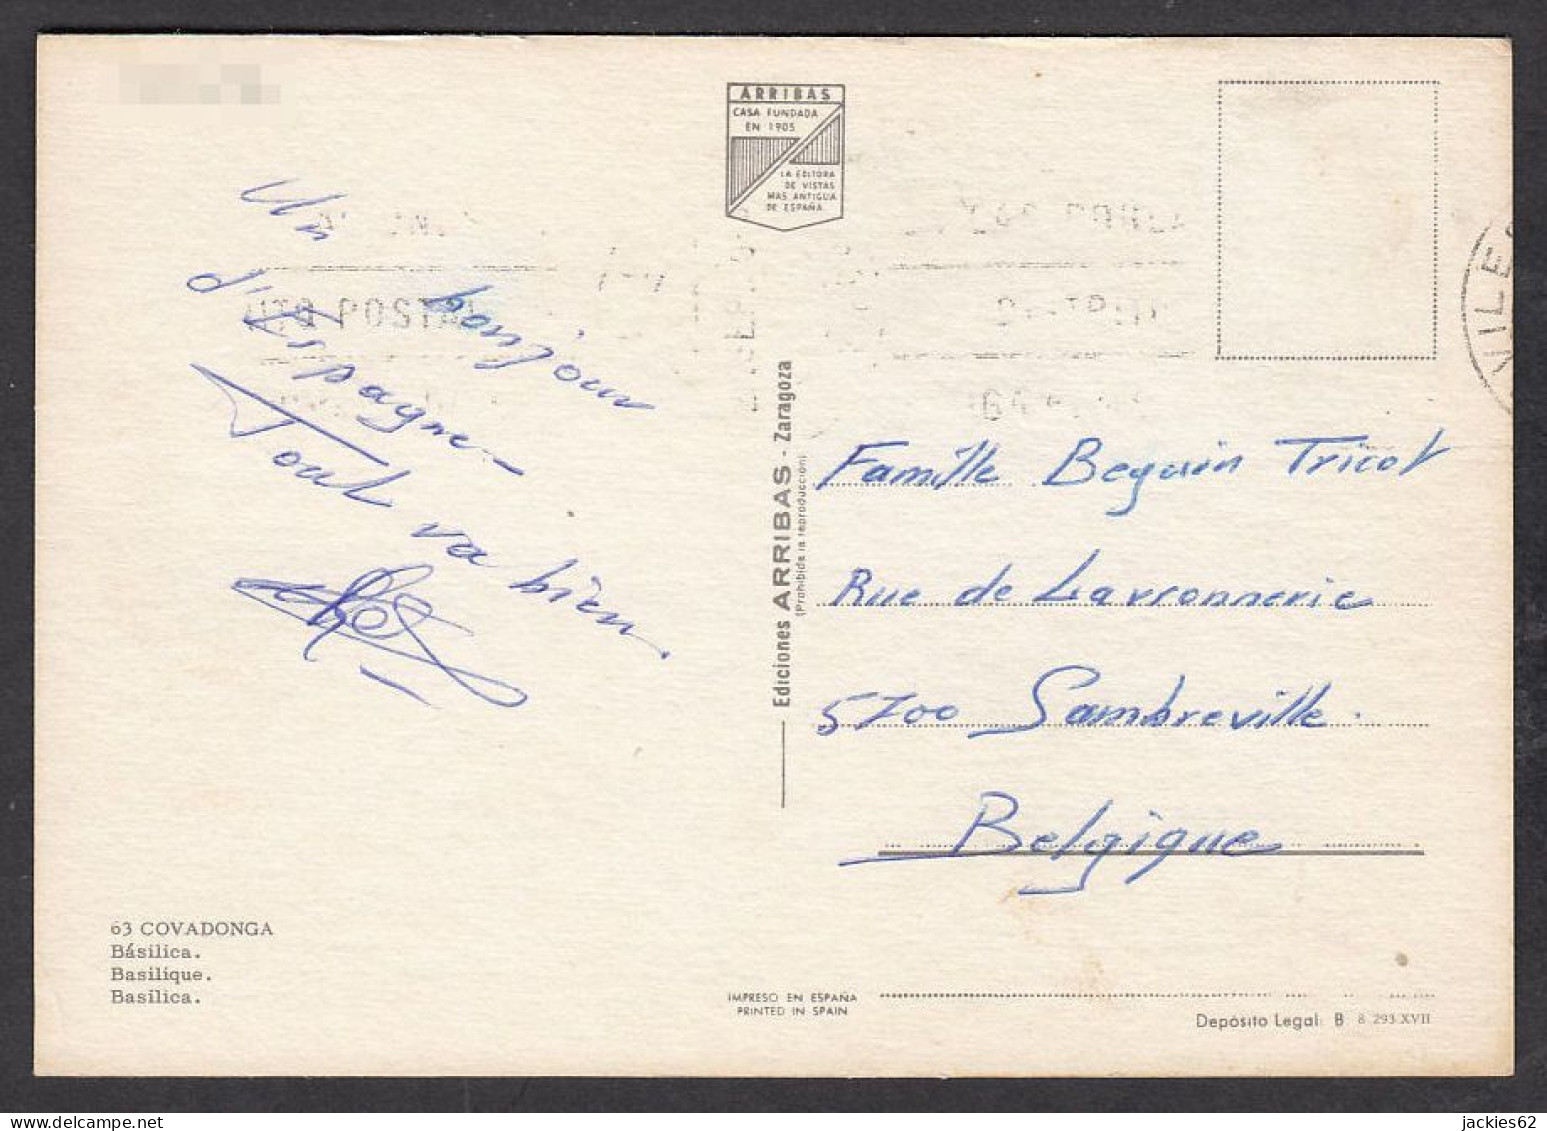 ARRIBAS
CASA FUNDADA
EN 1905
LA EDITORA
DE VISTAS
MAS ANTIGUA
DE ESPAÑA
Un bonjour
d'Espagne
Tout va bien.
POSTAL
VILES
Ediciones ARRIBAS - Zaragoza
(Prohibida la reproducción)
Famille Beguin Tricot
Rue de Larronnerie
5700 Sambreville.
Belgique
63 COVADONGA
Básilica.
Basilique.
Basilica.
IMPRESO EN ESPAÑA
PRINTED IN SPAIN
Depósito Legal: B 8.293-XVII
jackies62